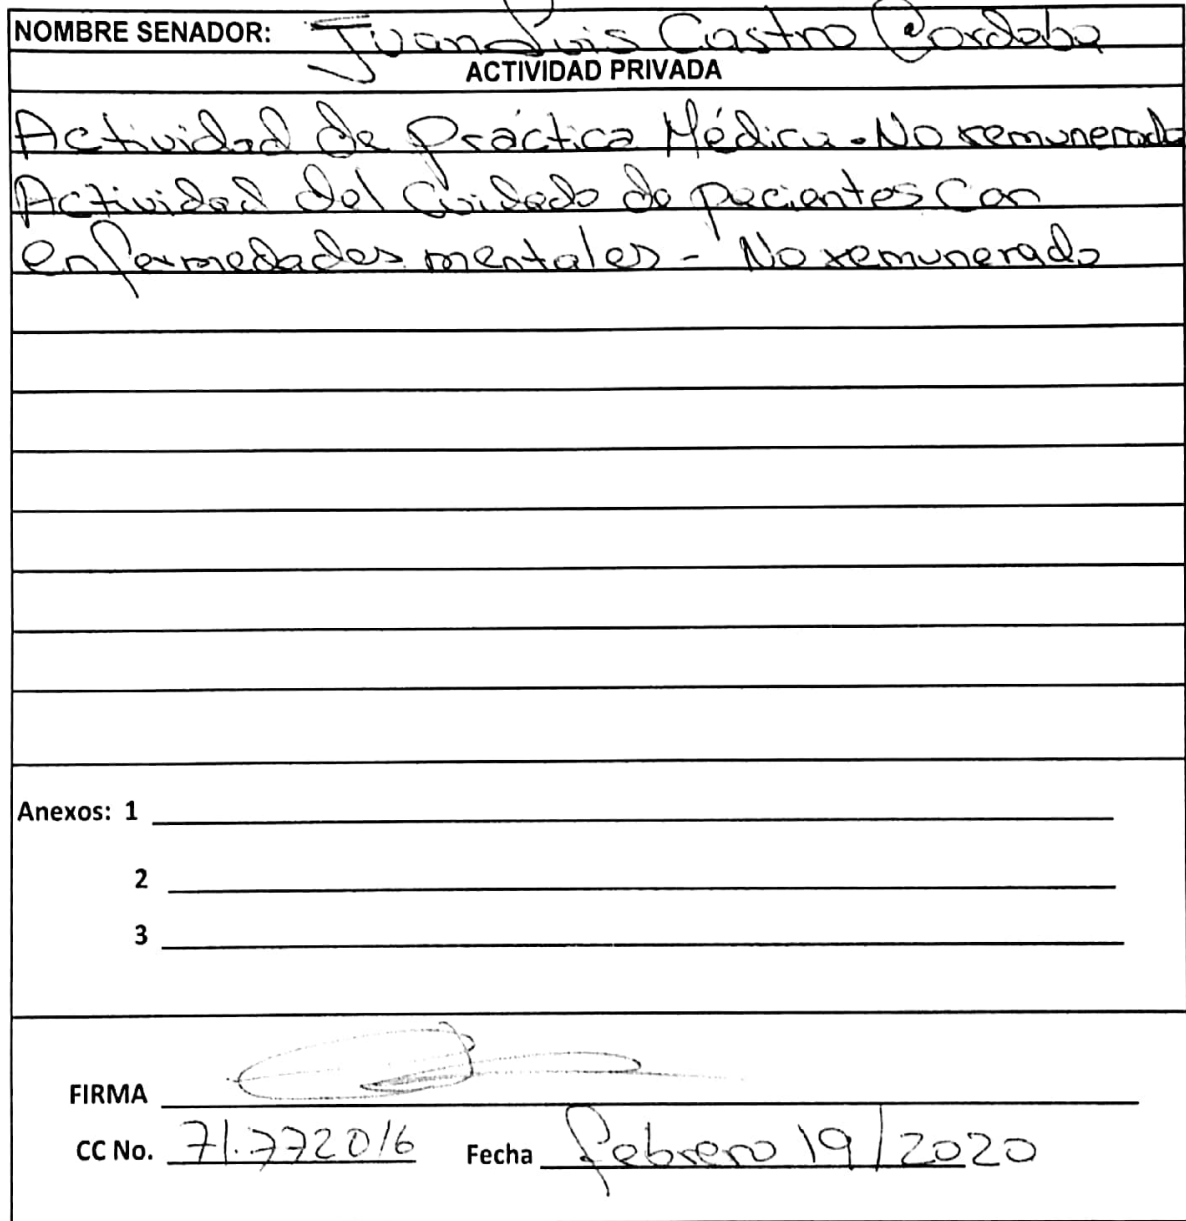 NOMBRE SENADOR: Juan Luis Castro Cordoba
ACTIVIDAD PRIVADA
Actividad de Práctica Médica - No remunerada
Actividad del Cuidado de pacientes con
enfermedades mentales - No remunerada
Anexos: 1
2
3
FIRMA
CC No. 71.772016 Fecha febrero 19/2020